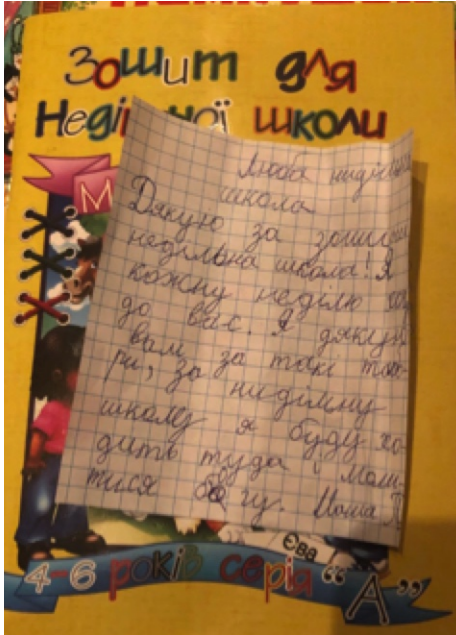 Зошит для
Недільної школи
М
Люба нидільна
школа
Дякую за зошити
недільна школа! Я
кожну неділю хожу
до вас. Я дякую
вам за такі тво-
ри, за нидільну
школу я буду хо-
дить туда і моли-
тися богу. Мама Я
Єва
4-6 років серія "А"